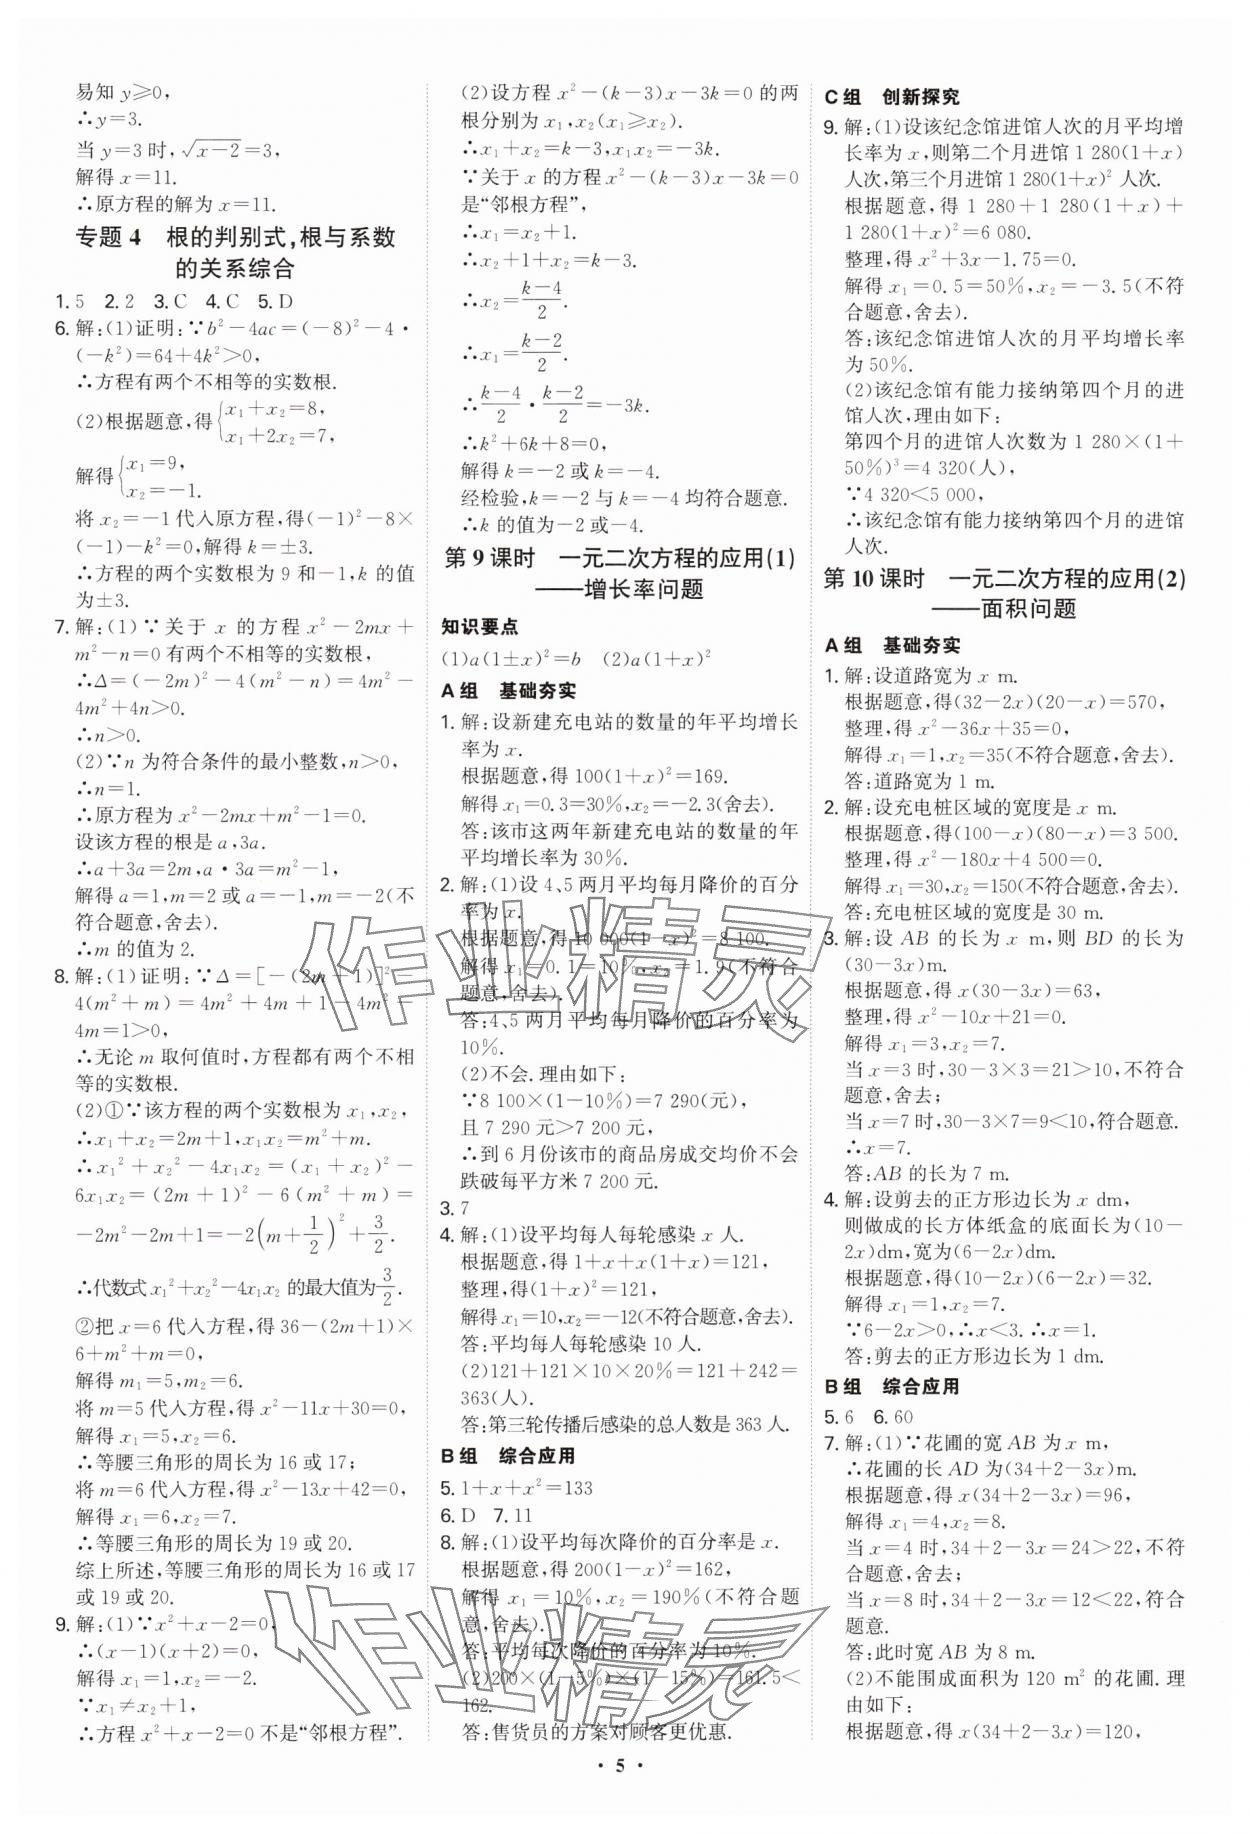 易知 y⩾0,
∴y=3.
当 y=3 时,√(x-2)=3,
解得 x=11.
∴原方程的解为 x=11.
专题 4　根的判别式,根与系数
的关系综合
1. 5　2. 2　3. C　4. C　5. D
6. 解:(1)证明:∵b²-4ac=(-8)²-4·
(-k²)=64+4k²>0,
∴方程有两个不相等的实数根.
(2)根据题意,得{x₁+x₂=8,
x₁+2x₂=7,
解得{x₁=9,
x₂=-1.
将 x₂=-1 代入原方程,得(-1)²-8×
(-1)-k²=0,解得 k=±3.
∴方程的两个实数根为 9 和-1,k 的值
为±3.
7. 解:(1)∵关于 x 的方程 x²-2mx+
m²-n=0 有两个不相等的实数根,
∴Δ=(-2m)²-4(m²-n)=4m²-
4m²+4n>0.
∴n>0.
(2)∵n 为符合条件的最小整数,n>0,
∴n=1.
∴原方程为 x²-2mx+m²-1=0.
设该方程的根是 a,3a.
∴a+3a=2m,a·3a=m²-1,
解得 a=1,m=2 或 a=-1,m=-2(不
符合题意,舍去).
∴m 的值为 2.
8. 解:(1)证明:∵Δ=[-(2m+1)]²-
4(m²+m)=4m²+4m+1-4m²-
4m=1>0,
∴无论 m 取何值时,方程都有两个不相
等的实数根.
(2)①∵该方程的两个实数根为 x₁,x₂,
∴x₁+x₂=2m+1,x₁x₂=m²+m.
∴x₁²+x₂²-4x₁x₂=(x₁+x₂)²-
6x₁x₂=(2m+1)²-6(m²+m)=
-2m²-2m+1=-2(m+1/2)²+3/2.
∴代数式 x₁²+x₂²-4x₁x₂ 的最大值为3/2.
②把 x=6 代入方程,得 36-(2m+1)×
6+m²+m=0,
解得 m₁=5,m₂=6.
将 m=5 代入方程,得 x²-11x+30=0,
解得 x₁=5,x₂=6.
∴等腰三角形的周长为 16 或 17;
将 m=6 代入方程,得 x²-13x+42=0,
解得 x₁=6,x₂=7.
∴等腰三角形的周长为 19 或 20.
综上所述,等腰三角形的周长为 16 或 17
或 19 或 20.
9. 解:(1)∵x²+x-2=0,
∴(x-1)(x+2)=0,
解得 x₁=1,x₂=-2.
∵x₁≠x₂+1,
∴方程 x²+x-2=0 不是“邻根方程”.
(2)设方程 x²-(k-3)x-3k=0 的两
根分别为 x₁,x₂(x₁⩾x₂).
∴x₁+x₂=k-3,x₁x₂=-3k.
∵关于 x 的方程 x²-(k-3)x-3k=0
是“邻根方程”,
∴x₁=x₂+1.
∴x₂+1+x₂=k-3.
∴x₂=(k-4)/2.
∴x₁=(k-2)/2.
∴(k-4)/2·(k-2)/2=-3k.
∴k²+6k+8=0,
解得 k=-2 或 k=-4.
经检验,k=-2 与 k=-4 均符合题意.
∴k 的值为-2 或-4.
第 9 课时　一元二次方程的应用(1)
——增长率问题
知识要点
(1)a(1±x)²=b　(2)a(1+x)²
A 组　基础夯实
1. 解:设新建充电站的数量的年平均增长
率为 x.
根据题意,得 100(1+x)²=169.
解得 x₁=0.3=30%,x₂=-2.3(舍去).
答:该市这两年新建充电站的数量的年
平均增长率为 30%.
2. 解:(1)设 4、5 两月平均每月降价的百分
率为 x.
根据题意,得 10 000(1-x)²=8 100.
解得 x₁=0.1=10%,x₂=1.9(不符合
题意,舍去).
答:4、5 两月平均每月降价的百分率为
10%.
(2)不会.理由如下:
∵8 100×(1-10%)=7 290(元),
且 7 290 元>7 200 元,
∴到 6 月份该市的商品房成交均价不会
跌破每平方米 7 200 元.
3. 7
4. 解:(1)设平均每人每轮感染 x 人.
根据题意,得 1+x+x(1+x)=121,
整理,得(1+x)²=121,
解得 x₁=10,x₂=-12(不符合题意,舍去).
答:平均每人每轮感染 10 人.
(2)121+121×10×20%=121+242=
363(人).
答:第三轮传播后感染的总人数是 363 人.
B 组　综合应用
5. 1+x+x²=133
6. D　7. 11
8. 解:(1)设平均每次降价的百分率是 x.
根据题意,得 200(1-x)²=162,
解得 x₁=10%,x₂=190%(不符合题
意,舍去).
答:平均每次降价的百分率为 10%.
(2)200×(1-5%)×(1-15%)=161.5<
162.
答:售货员的方案对顾客更优惠.
C 组　创新探究
9. 解:(1)设该纪念馆进馆人次的月平均增
长率为 x,则第二个月进馆 1 280(1+x)
人次,第三个月进馆 1 280(1+x)² 人次.
根据题意,得 1 280+1 280(1+x)+
1 280(1+x)²=6 080.
整理,得 x²+3x-1.75=0.
解得 x₁=0.5=50%,x₂=-3.5(不符
合题意,舍去).
答:该纪念馆进馆人次的月平均增长率
为 50%.
(2)该纪念馆有能力接纳第四个月的进
馆人次,理由如下:
第四个月的进馆人次数为 1 280×(1+
50%)³=4 320(人),
∵4 320<5 000,
∴该纪念馆有能力接纳第四个月的进馆
人次.
第 10 课时　一元二次方程的应用(2)
——面积问题
A 组　基础夯实
1. 解:设道路宽为 x m.
根据题意,得(32-2x)(20-x)=570,
整理,得 x²-36x+35=0,
解得 x₁=1,x₂=35(不符合题意,舍去).
答:道路宽为 1 m.
2. 解:设充电桩区域的宽度是 x m.
根据题意,得(100-x)(80-x)=3 500.
整理,得 x²-180x+4 500=0.
解得 x₁=30,x₂=150(不符合题意,舍去).
答:充电桩区域的宽度是 30 m.
3. 解:设 AB 的长为 x m,则 BD 的长为
(30-3x)m.
根据题意,得 x(30-3x)=63,
整理,得 x²-10x+21=0.
解得 x₁=3,x₂=7.
当 x=3 时,30-3×3=21>10,不符合
题意,舍去;
当 x=7 时,30-3×7=9<10,符合题意.
∴x=7.
答:AB 的长为 7 m.
4. 解:设剪去的正方形边长为 x dm,
则做成的长方体纸盒的底面长为(10-
2x)dm,宽为(6-2x)dm.
根据题意,得(10-2x)(6-2x)=32.
解得 x₁=1,x₂=7.
∵6-2x>0,∴x<3.∴x=1.
答:剪去的正方形边长为 1 dm.
B 组　综合应用
5. 6　6. 60
7. 解:(1)∵花圃的宽 AB 为 x m,
∴花圃的长 AD 为(34+2-3x)m.
根据题意,得 x(34+2-3x)=96,
解得 x₁=4,x₂=8.
当 x=4 时,34+2-3x=24>22,不符
合题意,舍去;
当 x=8 时,34+2-3x=12<22,符合
题意.
答:此时宽 AB 为 8 m.
(2)不能围成面积为 120 m² 的花圃.理
由如下:
根据题意,得 x(34+2-3x)=120,
· 5 ·
作业精灵
作业精灵